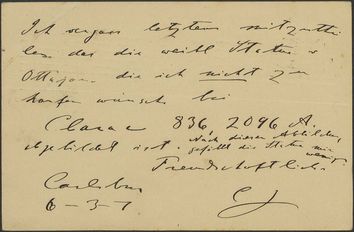 Ich vergass letztens mitzuthei
len das die weibl Statue v
die ich nicht zu
kaufen wünsch bei
Clarac 836, 2096 A.
abgebildet ist. Nach dieser Abbildung
gefällt die Statue mir
wenig.
Freundschaftlichst
Carlsberg
6-3-1
CJ